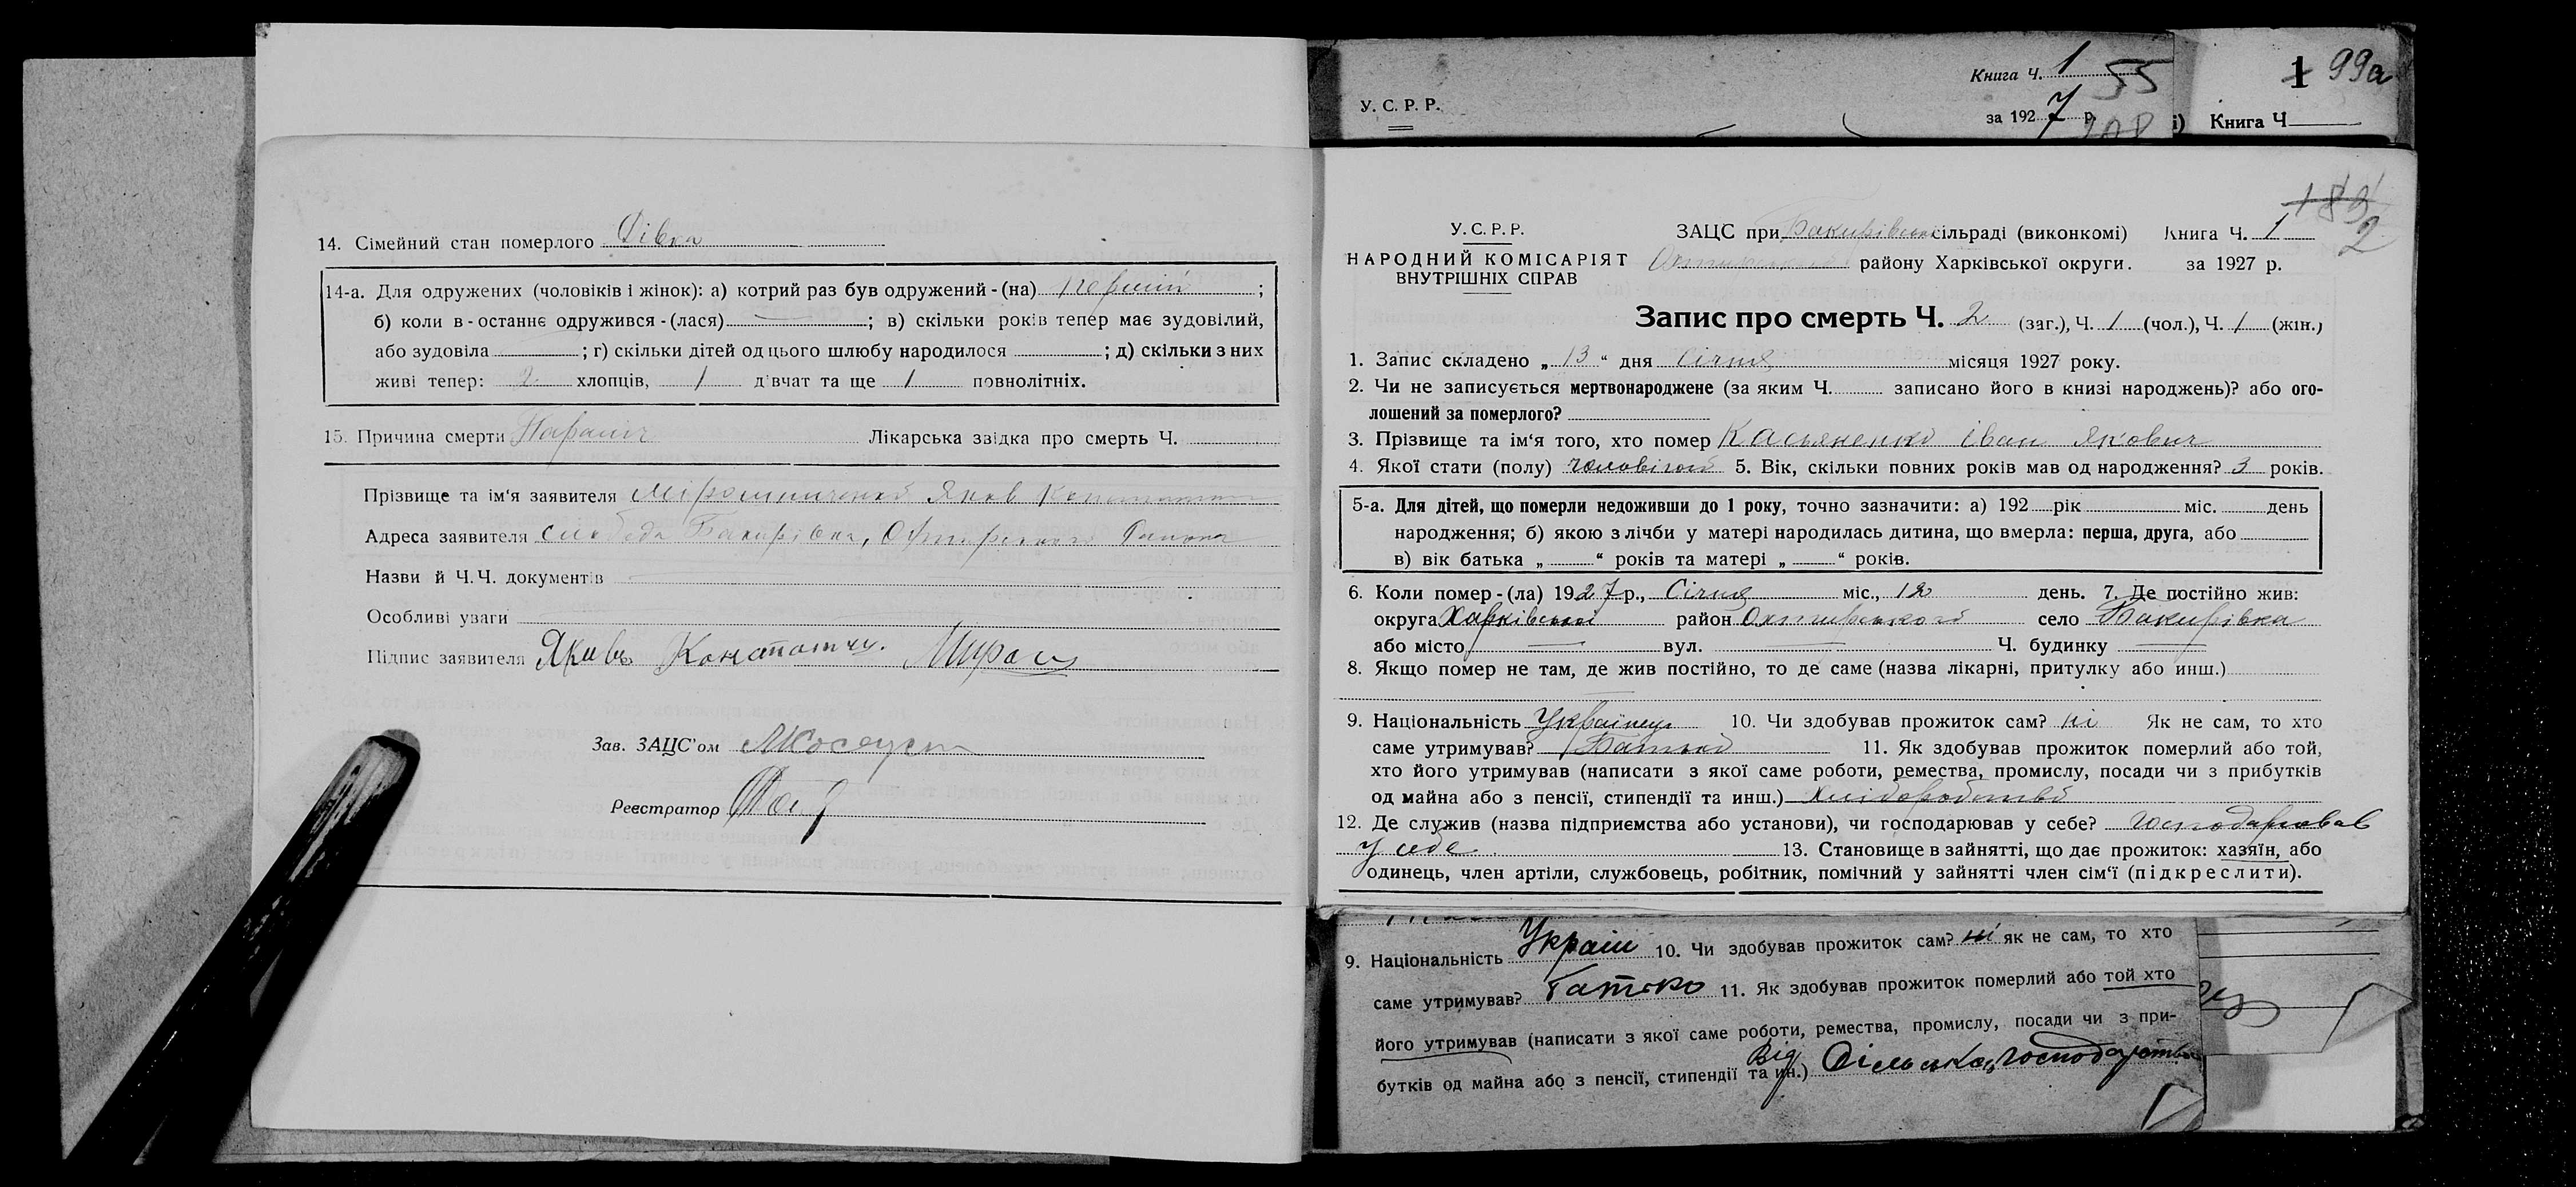 14. Сімейний стан померлого Дівка
14-а. Для одружених (чоловіків і жінок): а) котрий раз був одружений - (на) Перший ;
б) коли в - останнє одружився - (лася) ; в) скільки років тепер має зудовілий,
або зудовіла ; г) скільки дітей од цього шлюбу народилося ; д) скільки з них
живі тепер: 2 хлопців, 1 дівчат та ще 1 повнолітніх.
15. Причина смерти Лікарська звідка про смерть Ч.
Прізвище та ім'я заявителя Мірошниченко Яков
Адреса заявителя слобода Бакирівка, Охтирського Району
Назви й Ч.Ч. документів
Особливі уваги
Підпис заявителя Яковъ
Зав. ЗАЦС'ом
Реєстратор
Книга Ч. 1 55
У. С. Р. Р.
за 1927 р. 208
1 99а
і) Книга Ч
183
2
У. С. Р. Р. ЗАЦС при Бакирівській сільраді (виконкомі) Книга Ч. 1
НАРОДНИЙ КОМІСАРІЯТ Охтирського району Харківської округи. за 1927 р.
ВНУТРІШНІХ СПРАВ
Запис про смерть Ч. 2 (заг.), Ч. 1 (чол.), Ч. 1 (жін.)
1. Запис складено „ 13 “ дня Січня місяця 1927 року.
2. Чи не записується мертвонароджене (за яким Ч. записано його в книзі народжень)? або ого-
лошений за померлого?
3. Прізвище та ім'я того, хто помер Касьяненко Іван Якович
4. Якої стати (полу) чоловічої 5. Вік, скільки повних років мав од народження? 3 років.
5-а. Для дітей, що померли недоживши до 1 року, точно зазначити: а) 192 рік міс. день
народження; б) якою з лічби у матері народилась дитина, що вмерла: перша, друга, або
в) вік батька „ “ років та матері „ “ років.
6. Коли помер - (ла) 1927 р., Січня міс., 12 день. 7. Де постійно жив:
округа Харківської район Охтирського село Бакирівка
або місто вул. Ч. будинку
8. Якщо помер не там, де жив постійно, то де саме (назва лікарні, притулку або инш.)
9. Національність Українець 10. Чи здобував прожиток сам? ні Як не сам, то хто
саме утримував? Батько 11. Як здобував прожиток померлий або той,
хто його утримував (написати з якої саме роботи, ремества, промислу, посади чи з прибутків
од майна або з пенсії, стипендії та инш.) Хліборобство
12. Де служив (назва підприємства або установи), чи господарював у себе? Господарював
у себе 13. Становище в зайнятті, що дає прожиток: хазяїн, або
одинець, член артіли, службовець, робітник, помічний у зайнятті член сім'ї (підкреслити).
9. Національність Україн 10. Чи здобував прожиток сам? ні як не сам, то хто
саме утримував? Батько 11. Як здобував прожиток померлий або той хто
його утримував (написати з якої саме роботи, ремества, промислу, посади чи з при-
бутків од майна або з пенсії, стипендії та ин.) Від Сільська, господарства